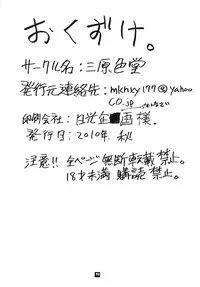 おくずけ。
サークル名：三原色堂
発行元連絡先：mkhxy177@yahoo
co.jp
印刷会社：日光企画様。
発行日：2010年.秋
注意!! 全ページ無断転載禁止。
18才未満購読禁止。